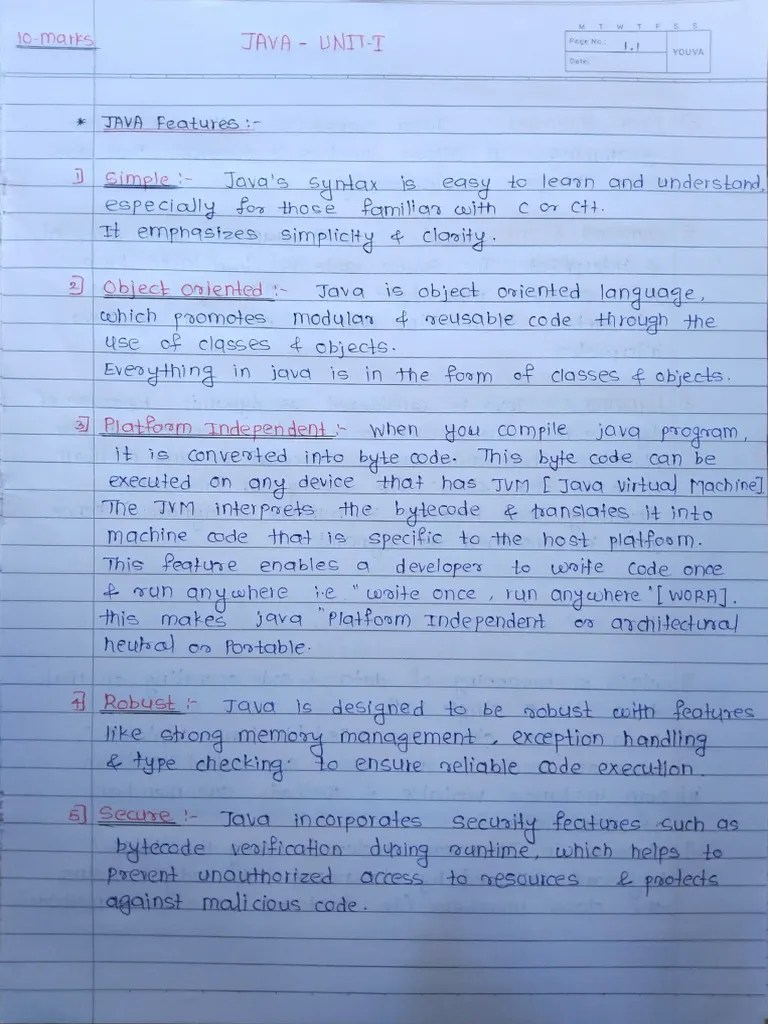 10-marks
JAVA - UNIT-I
M T W T F S S
Page No.: 1.1
YOUVA
Date:
* JAVA Features :-
1] Simple :- Java's syntax is easy to learn and understand,
especially for those familiar with C or C++.
It emphasizes simplicity & clarity.
2] Object oriented :- Java is object oriented language,
which promotes modular & reusable code through the
use of classes & objects.
Everything in java is in the form of classes & objects.
3] Platform Independent :- When you compile java program,
it is converted into byte code. This byte code can be
executed on any device that has JVM [Java Virtual Machine]
The JVM interprets the bytecode & translates it into
machine code that is specific to the host platform.
This feature enables a developer to write code once
& run anywhere i.e "write once, run anywhere" [WORA].
this makes java "Platform Independent or architectural
neutral or Portable.
4] Robust :- Java is designed to be robust with features
like strong memory management, exception handling
& type checking. to ensure reliable code execution.
5] Secure :- Java incorporates security features such as
bytecode verification during runtime, which helps to
prevent unauthorized access to resources & protects
against malicious code.